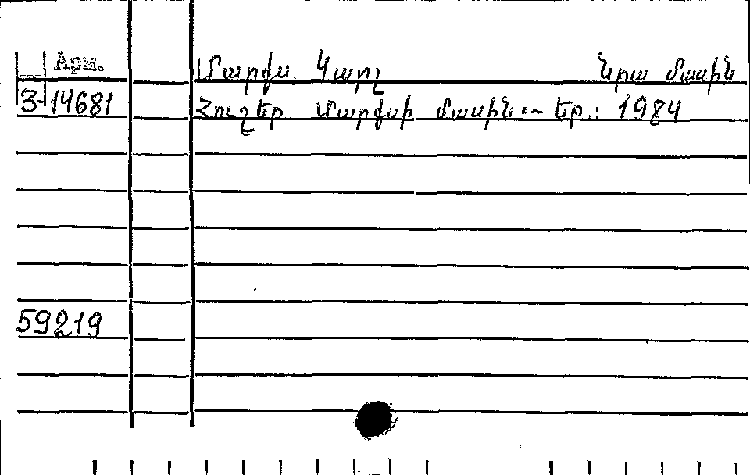 Արմ. Մարքս Կարլ նրա մասին
3-14681 Հուշեր Մարքսի մասին.— Եր.: 1984
59219